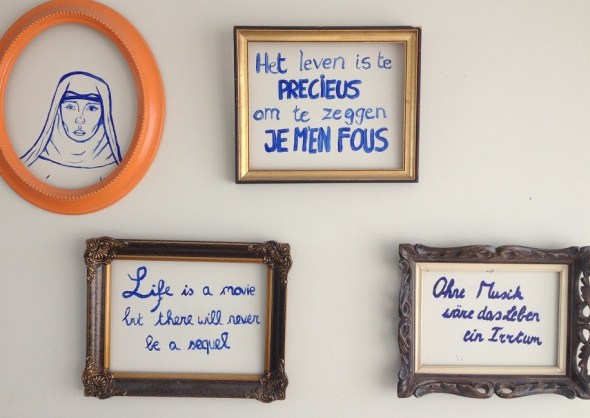 Het leven is te
PRECIEUS
om te zeggen
JE M'EN FOUS
Life is a movie
but there will never
be a sequel
Ohne Musik
wäre das Leben
ein Irrtum